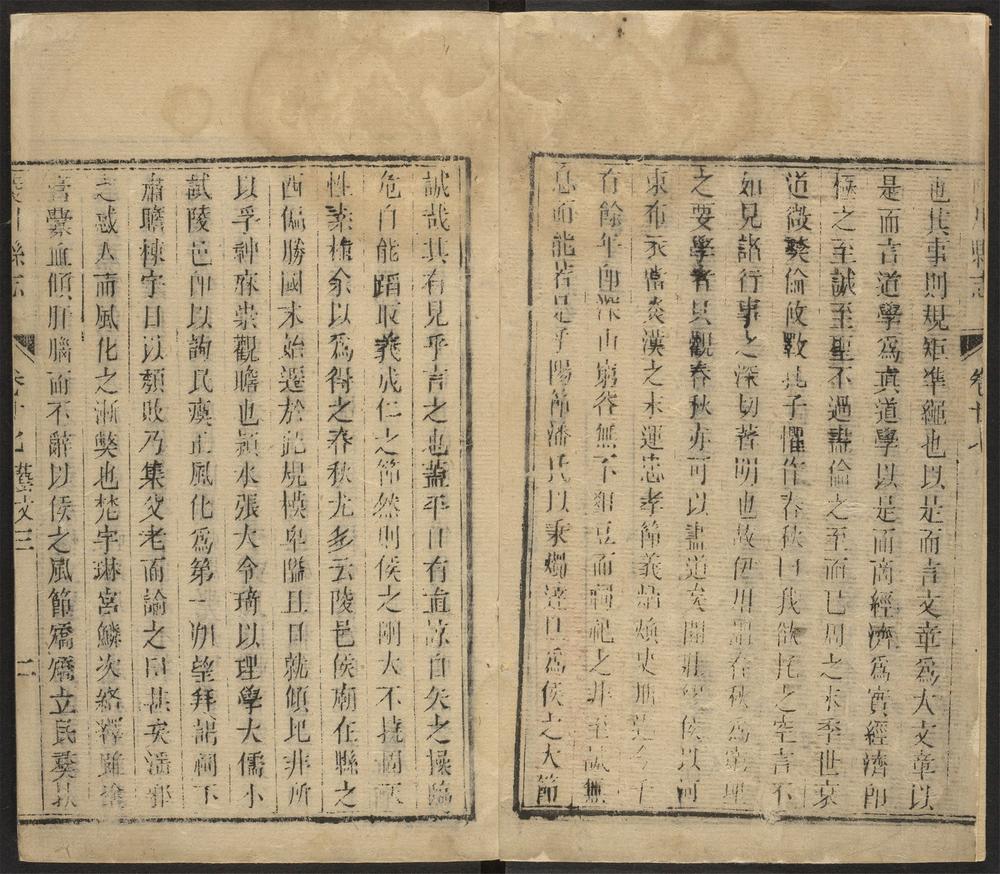 川縣志
卷十七
也其事則規矩準繩也以是而言文章爲大文章以
是而言道學爲真道學以是而商經濟爲實經濟即
極之至誠至聖不過盡倫之至而已周之末季世衰
道微彝倫攸斁孔子懼作春秋曰我欲托之空言不
如見諸行事之深切著明也故伊川謂春秋爲窮理
之要學者只觀春秋亦可以盡道矣關壯繆侯以河
東布衣當炎漢之末運忠孝節義炳煥史冊迄今千
有餘年即深山窮谷無不俎豆而祠祀之非至誠無
息而能若是乎陽節潘氏以秉燭達旦爲侯之大節
誠哉其有見乎言之也蓋平日有直諒自矢之操臨
危自能蹈取義成仁之節然則侯之剛大不撓固
性素植余以爲得之春秋尤多云陵邑侯廟在縣之
西偏勝國末始遷於記規模卑隘且日就傾圮非所
以孚神庥崇觀瞻也潁水張大令琦以理學大儒小
試陵邑即以詢民瘼正風化爲第一朔望拜謁祠下
肅瞻棟宇日以頹敗乃集父老而諭之曰甚矣淫邪
之惑人而風化之漸斁也梵宇琳宮鱗次絡繹雖
膏釁血傾肝腦而不辭以侯之風節矯矯立民彝扶
川縣志
卷十七 藝文三
二